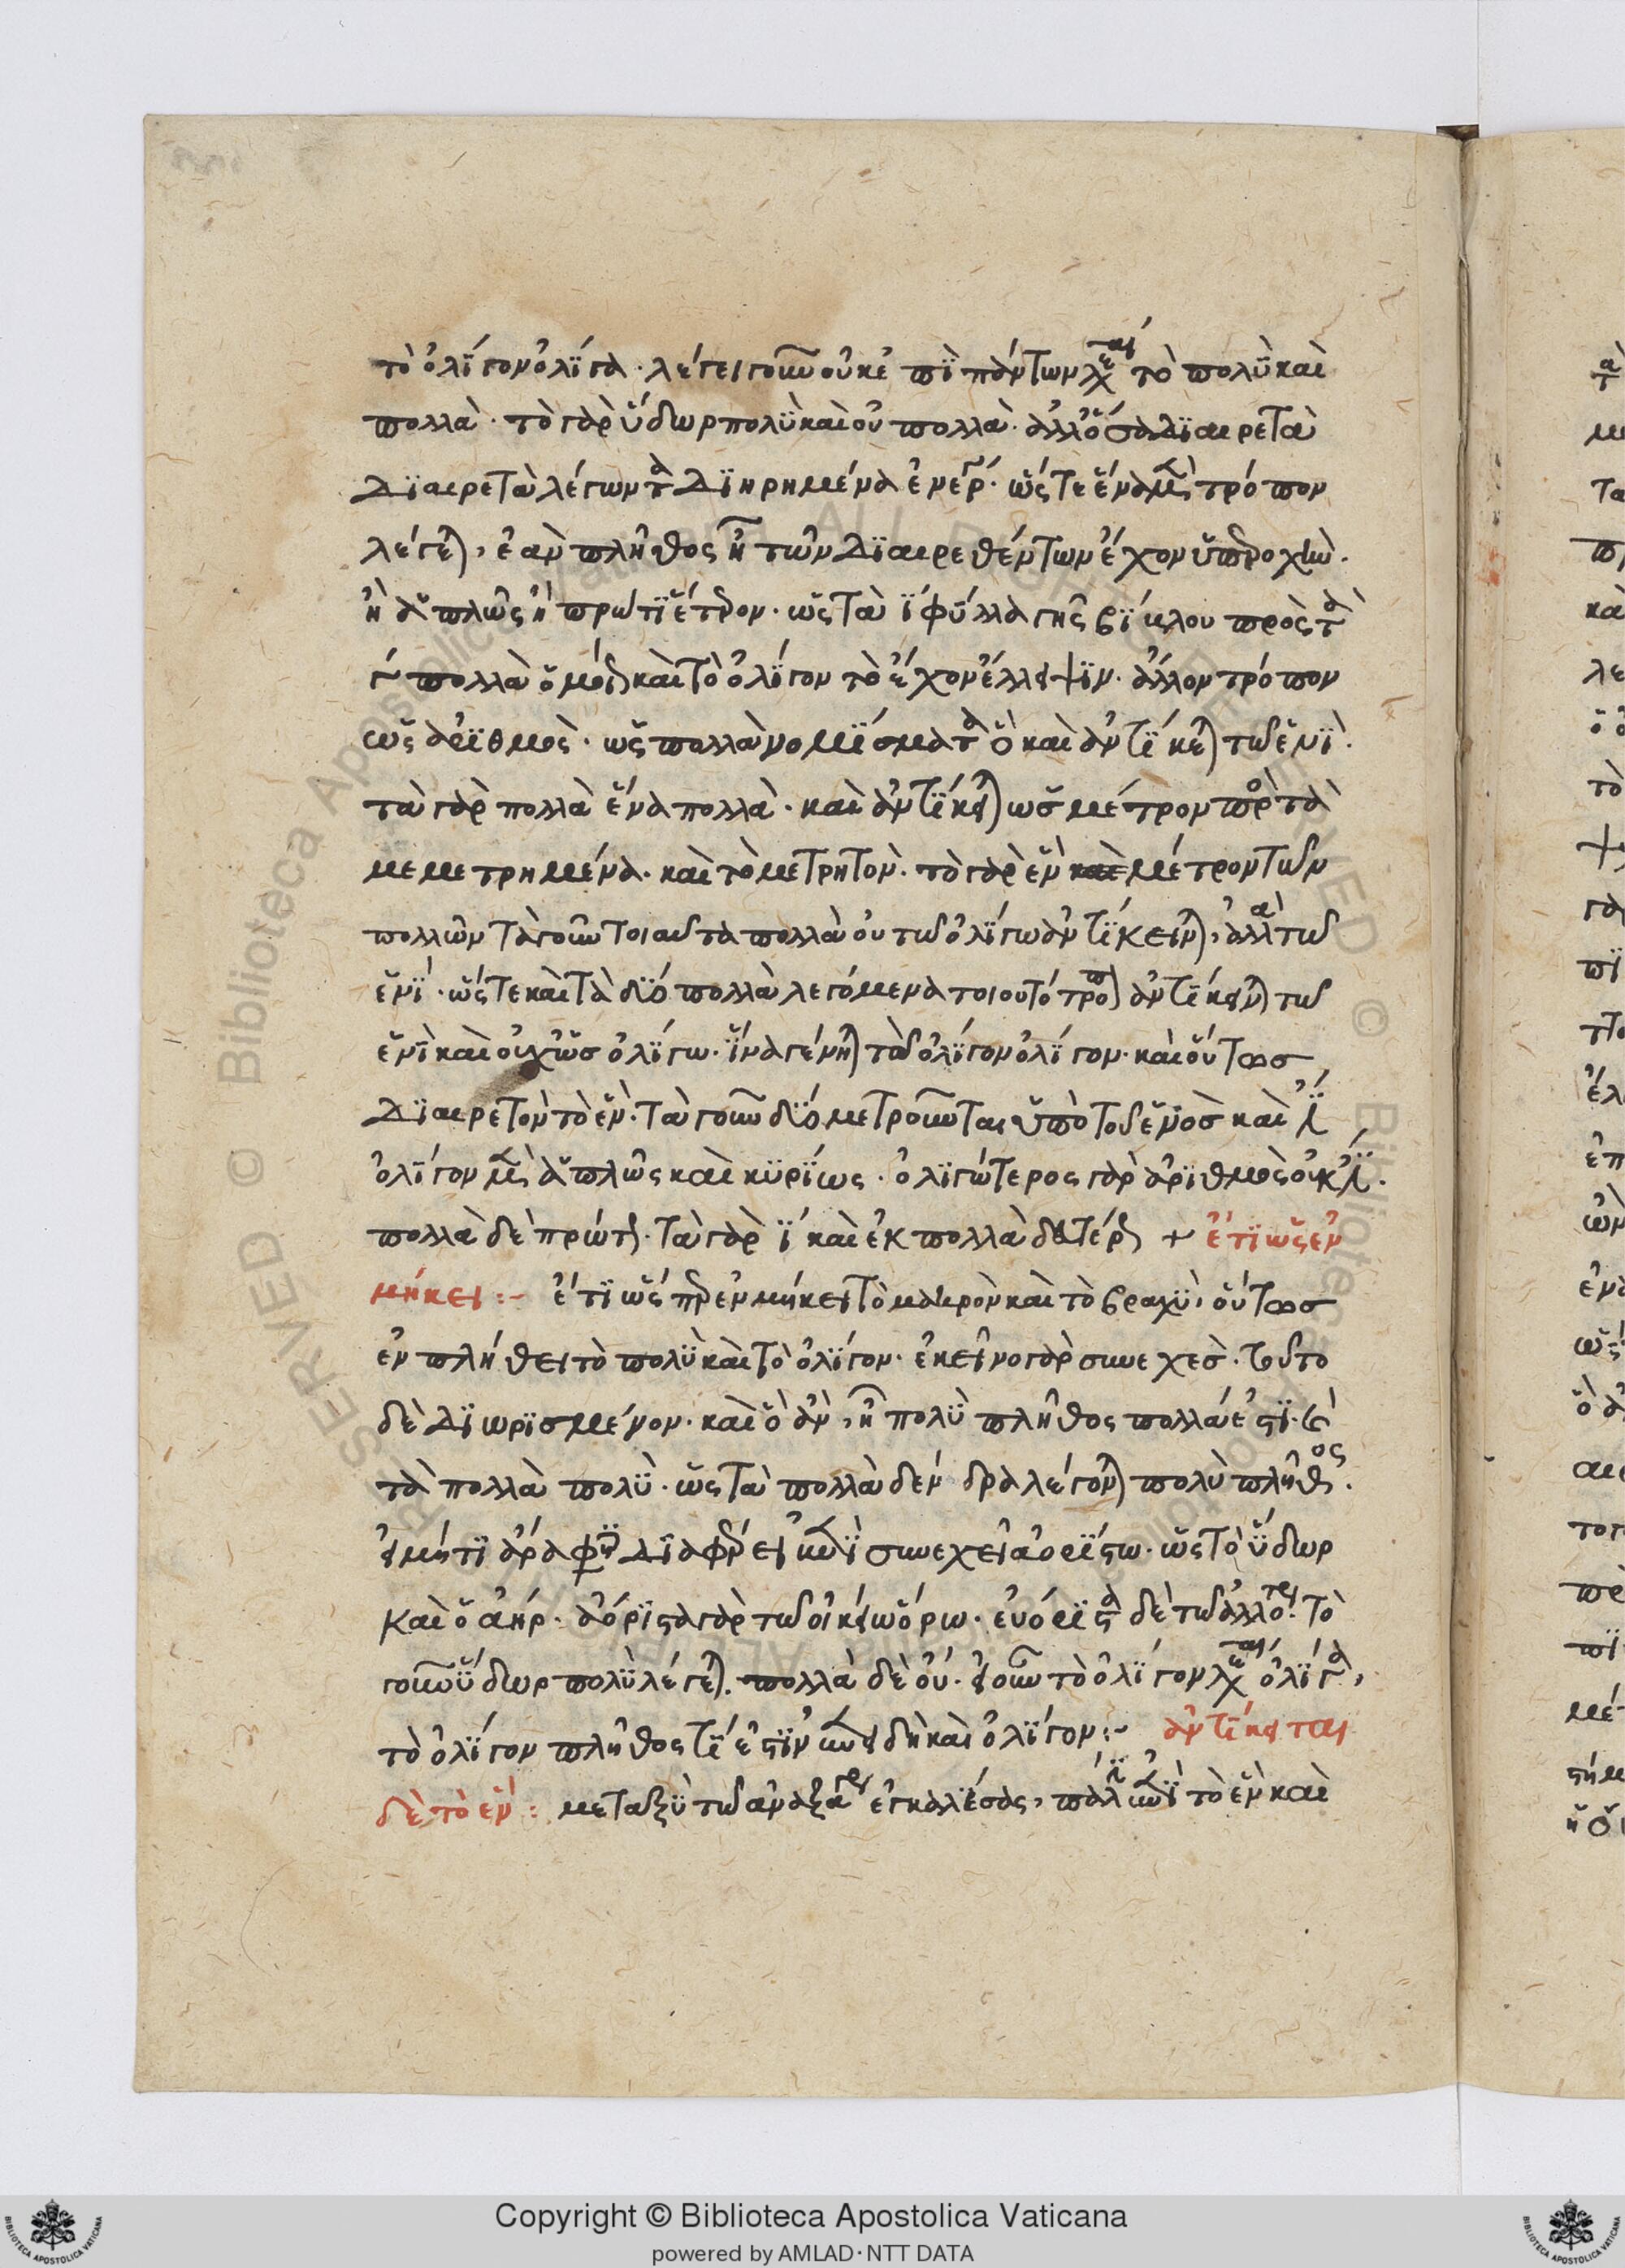 τὸ ὀλίγον ὀλίγα· λέγει γοῦν οὐκ ἐπὶ πάντων τὸ πολὺ καὶ
πολλά· τὸ γὰρ ὕδωρ πολὺ καὶ οὐ πολλά· ἀλλ' ὅσα διαιρετὰ
διαιρετὰ λέγων τὰ διῃρημένα ὥς τε ἕνα μὲν τρόπον
λέγεται, ἐὰν πλῆθος ᾖ τῶν διαιρεθέντων ἔχον ὑπεροχήν·
ἢ ἁπλῶς ἢ πρός τι ἕτερον· ὡς τὰ ι φύλλα τῆς βίβλου πρὸς τὰ
γ πολλά ὁμοίως καὶ τὸ ὀλίγον τὸ ἔχον ἔλλειψιν· ἄλλον τρόπον
ὡς ἀριθμός· ὡς πολλὰ νομίσματα ὃ καὶ ἀντίκειται τῷ ἑνί·
τὰ γὰρ πολλὰ ἕνα πολλά· καὶ ἀντίκειται ὡς μέτρον πρὸς τὰ
μεμετρημένα· καὶ τὸ μετρητόν· τὸ γὰρ ἓν μέτρον τῶν
πολλῶν τὰ γοῦν τοιαῦτα πολλὰ οὐ τῷ ὀλίγω ἀντίκεινται, ἀλλὰ τῷ
ἑνί· ὥς τε καὶ τὰ δύο πολλὰ λεγόμενα τοιουτότροπον ἀντίκεινται τῷ
ἑνὶ καὶ οὐχ ὡς ὀλίγω· ἵνα γένηται τὸ ὀλίγον ὀλίγον· καὶ οὕτως
διαιρετὸν τὸ ἕν· τὰ γοῦν δύο μετροῦνται ὑπὸ τοῦ ἑνὸς καὶ ἔστιν
ὀλίγον μὲν ἁπλῶς καὶ κυρίως· ὀλιγώτερος γὰρ ἀριθμὸς οὐκ ἔστιν·
πολλὰ δὲ πρώτως· τὰ γὰρ ι καὶ ἑκ πολλὰ δευτέρως + ἔτι ὡς ἐν
μήκει :- ἔτι ὥς περ ἐν μήκει τὸ μακρὸν καὶ τὸ βραχύ, οὕτως
ἐν πλήθει τὸ πολὺ καὶ τὸ ὀλίγον· ἐκεῖνο γὰρ συνεχές· τοῦτο
δὲ διωρισμένον· καὶ ὃ ἂν ᾖ πολὺ πλῆθος πολλά ἐστι· καὶ
τὰ πολλὰ πολύ· ὡς τὰ πολλὰ δένδρα λέγονται πολὺ πλῆθος·
εἰ μή τι ἄρα φησὶ διαφέρει κἂν ᾖ συνεχεῖ ἀορίστω· ὡς τὸ ὕδωρ
καὶ ὁ ἀήρ· ἀόριστα γὰρ τῷ οἰκείω ὅρω· εὐόριστα δὲ τῷ ἀλλοτρίω· τὸ
γοῦν ὕδωρ πολὺ λέγεται· πολλὰ δὲ οὔ· εἰ οὖν τὸ ὀλίγον ὀλίγα,
τὸ ὀλίγον πλῆθος τί ἐστιν ὧν εἰ δὴ καὶ ὀλίγον :- ἀντίκειται
δὲ τὸ ἕν : μεταξὺ τῷ ἀναξαγόρα ἐγκαλέσας, πάλιν τὸ ἓν καὶ